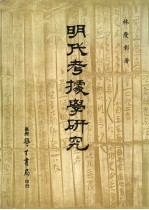 林慶彰著
明代考據學研究
臺灣學生書局印行